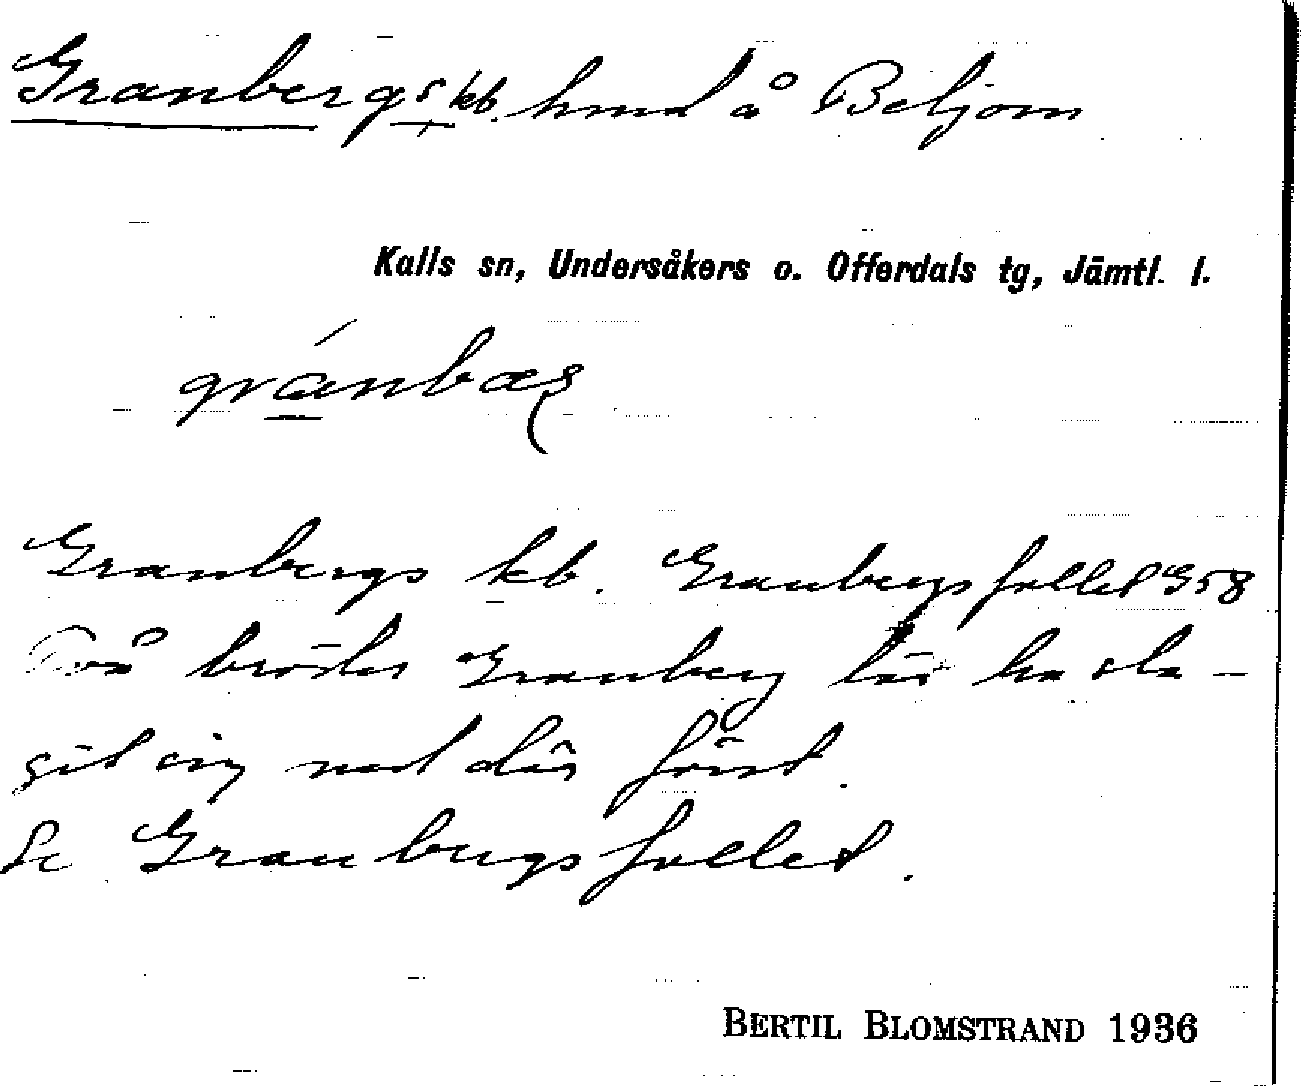 Granbergs kb. hmd å Beljom
Kalls sn, Undersåkers o. Offerdals tg, Jämtl. l.
gránbæʂ
Granbergs kb. Granbergsfallet G58
Två bröder Granberg lär ha sla-
git sig ned där först.
Se Granbergsfallet.
BERTIL BLOMSTRAND 1936